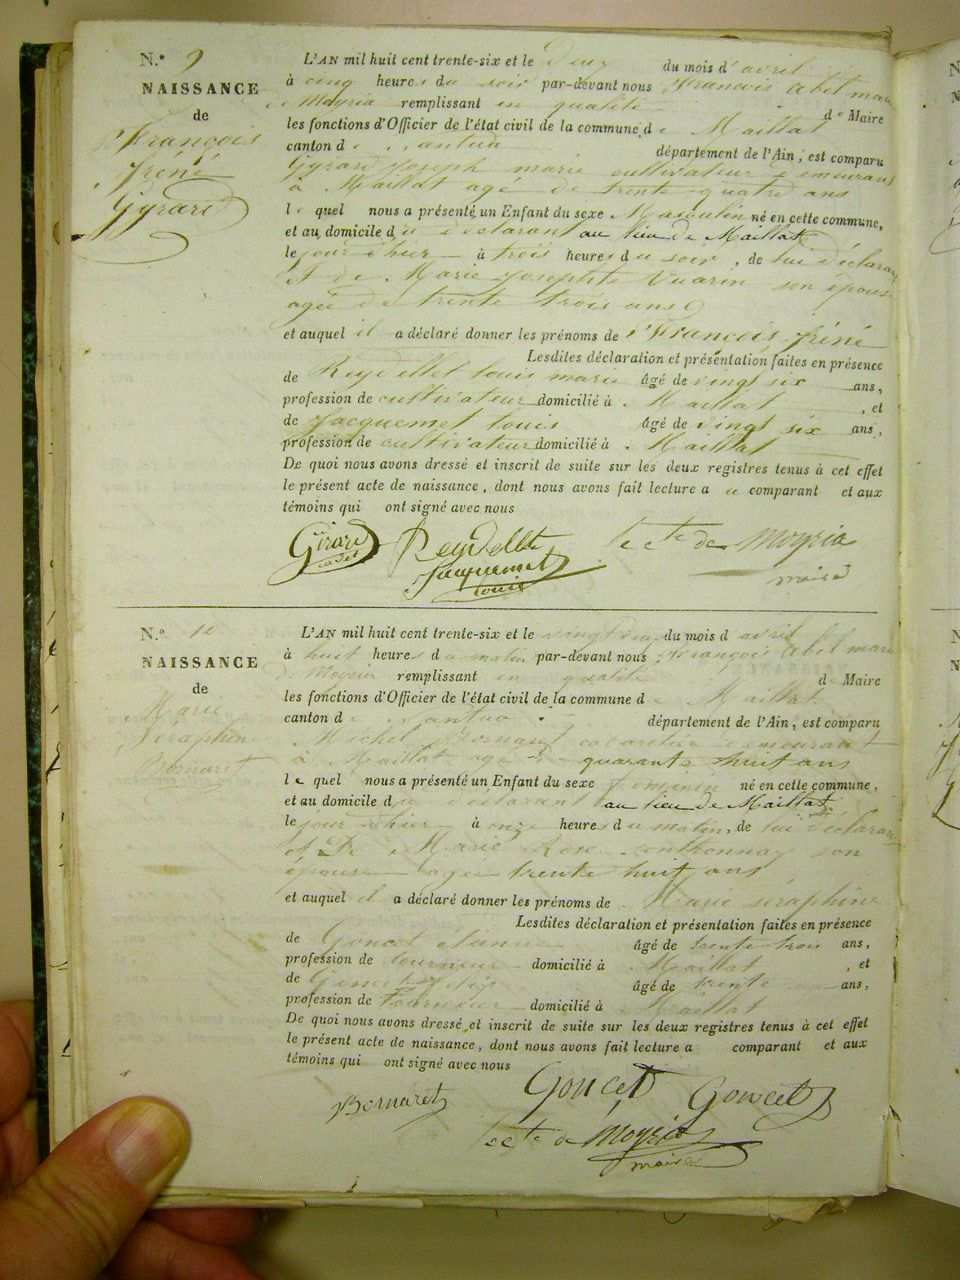 N.° 9
NAISSANCE
de
François
Iréné
Gyrard
L'AN mil huit cent trente-six et le Deux du mois d'avril
à cinq heures du soir par-devant nous François Abel marie
Moyria remplissant en qualité d e Maire
les fonctions d'Officier de l'état civil de la commune d e Maillat
canton d e nantua département de l'Ain, est comparu
Gyrard Joseph marie cultivateur demeurant
à Maillat agé de trente quatre ans
le quel nous a présenté un Enfant du sexe Masculin né en cette commune,
et au domicile du déclarant au lieu de Maillat
le jour d'hier à trois heures du soir, de lui déclarant
et de Marie Josephte Vuarin son épouse
agée de trente trois ans
et auquel il a déclaré donner les prénoms de François Iréné
Lesdites déclaration et présentation faites en présence
de Reydellet louis marie âgé de vingt six ans,
profession de cultivateur domicilié à Maillat, et
de Jacquemet louis âgé de vingt six ans,
profession de cultivateur domicilié à Maillat
De quoi nous avons dressé et inscrit de suite sur les deux registres tenus à cet effet
le présent acte de naissance, dont nous avons fait lecture a u comparant et aux
témoins qui ont signé avec nous
Girard cadet Reydellet
Jacquemet louis
le cte de Moyria
maire
N.° 10
NAISSANCE
de
Marie
Séraphine
Bornaret
L'AN mil huit cent trente-six et le vingt du mois d avril
à huit heures du matin par-devant nous François Abel marie
de Moyria remplissant en qualité d Maire
les fonctions d'Officier de l'état civil de la commune d e Maillat
canton d e Nantua département de l'Ain, est comparu
Michel Bornaret cabaretier demeurant
à Maillat agé de quarante huit ans
le quel nous a présenté un Enfant du sexe féminin né en cette commune,
et au domicile du déclarant au lieu de Maillat
le jour d'hier à onze heures du matin, de lui déclarant
et De Marie Rose son
épouse agée trente huit ans
et auquel il a déclaré donner les prénoms de Marie séraphine
Lesdites déclaration et présentation faites en présence
de Goncet âgé de trente trois ans,
profession de tourneur domicilié à Maillat, et
de Goncet âgé de trente ans,
profession de tourneur domicilié à Maillat
De quoi nous avons dressé et inscrit de suite sur les deux registres tenus à cet effet
le présent acte de naissance, dont nous avons fait lecture a comparant et aux
témoins qui ont signé avec nous
Bornaret Goncet Goncet
le cte de Moyria
maire